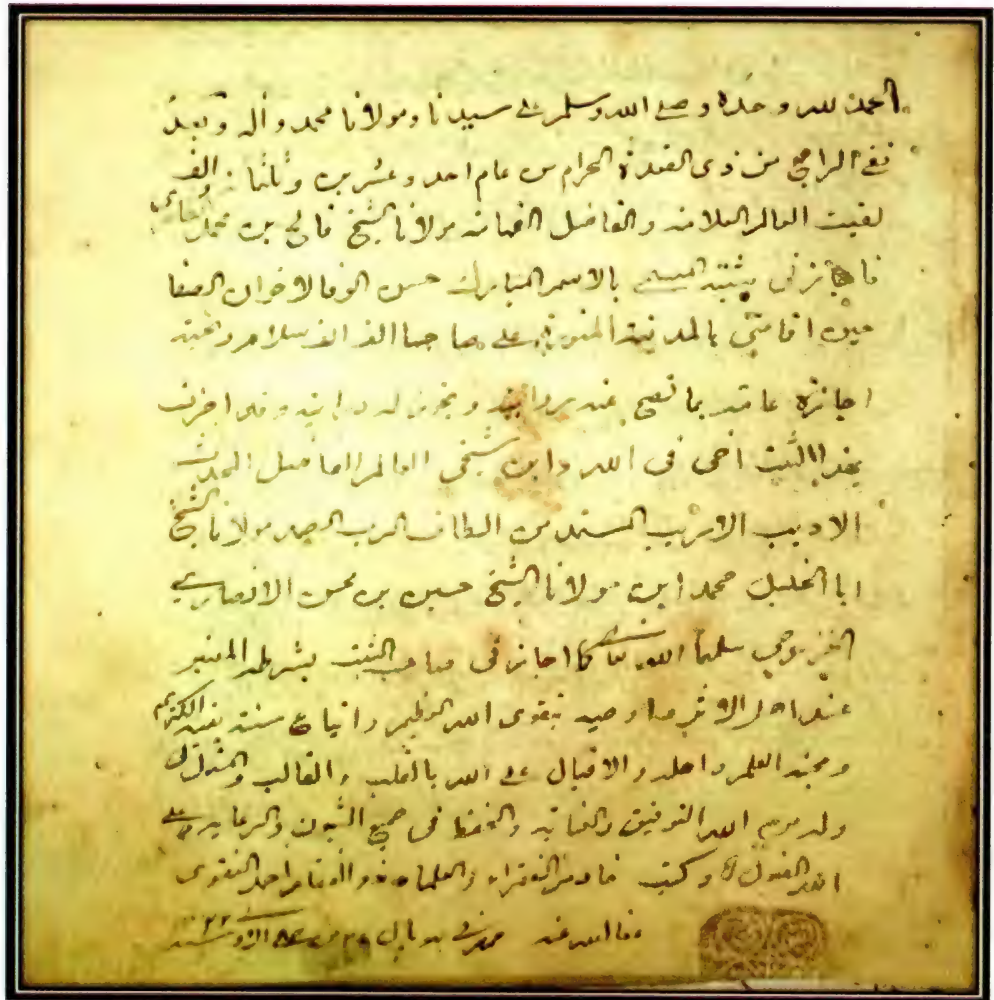 الحمد لله وحده وصلى الله وسلم على سيدنا ومولانا محمد وآله وبعد
ففي الرابع من ذي القعدة الحرام من عام احد وعشرين وثلثمائة والف
لقيت العالم العلامه والفاضل الفهامه مولانا الشيخ فالح بن محمد
فاجازني بثبته المسمى بالاسم المبارك حسن الوفا لاخوان الصفا
حين اقامتي بالمدينة المنوره على صاحبها الف الف سلام وتحيه
اجازة عامه بما تصح عنه روايته ويجوز له درايته وقد اجزت
بهذا الثبت اخي في الله وابن شيخي العالم الفاضل المحدث
الاديب الاريب المسند من الطاف الرب الصمد مولانا الشيخ
ابا الخليل محمد ابن مولانا الشيخ حسين بن محسن الانصاري
الخزرجي سلمهما الله تعالى كما اجازني صاحب الثبت بشرطه المعتبر
عند اهل الاثر واوصيه بتقوى الله العظيم واتباع سنة نبيه الكريم
ومحبة العلم واهله والاقبال على الله بالقلب والقالب والمسئول لي
وله من الله التوفيق والعنايه والحفظ في جميع الشئون والرعايه وعلى
الله القبول وكتب خادم الفقراء والعلماء
عفا الله عنه في بهوپال ٢٨ من سنة ٢٢